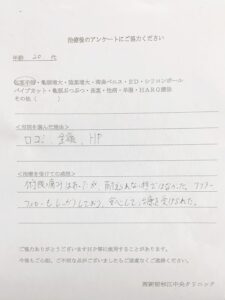 治療後のアンケートにご協力ください
年齢 20 代
包茎手術・亀頭増大・陰茎増大・長茎・ED・シリコンボール
パイプカット・亀頭ぶつぶつ・性病・早漏・HARG療法
その他( )
<当院を選んだ理由>
口コミ、金額、HP
<治療を受けての感想>
術後の痛みはあったが、耐えられない程ではなかった。アフター
フォローもしっかりしており、安心して治療を受けられた。
ご協力ありがとうございます
今後もご心配、ご不明な点がございましたらご遠慮なくご連絡ください。
西新宿 中央クリニック